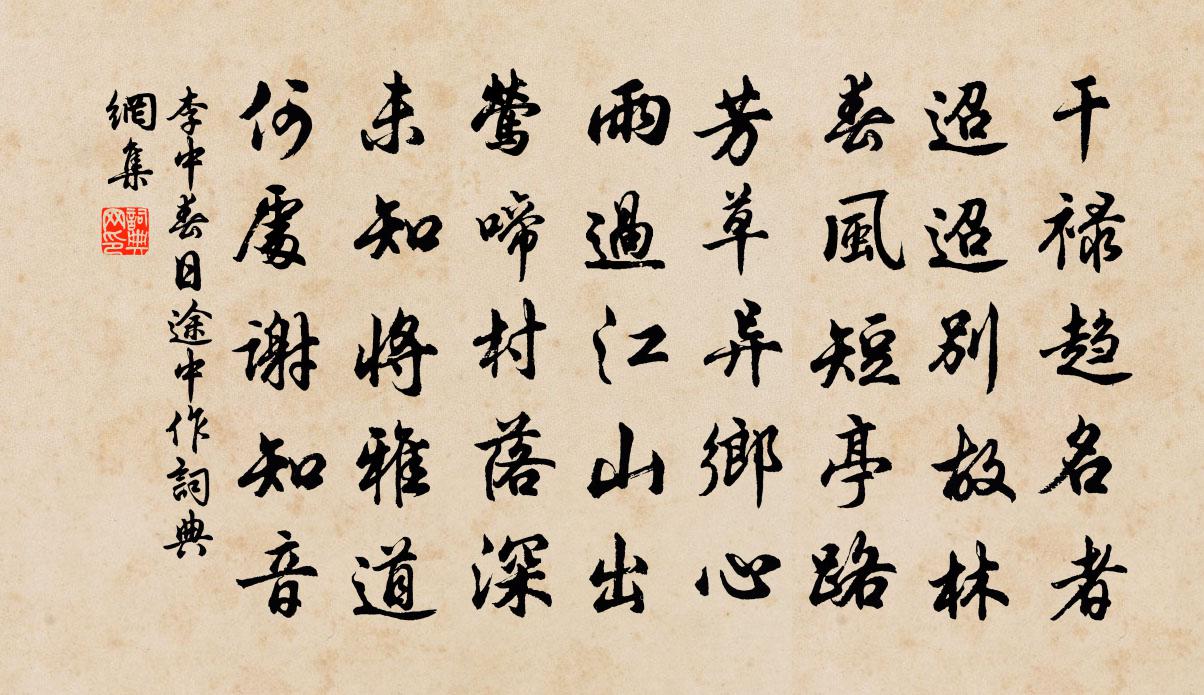 干禄趋名者
迢迢别故林
春風短亭路
芳草异鄉心
雨過江山出
鶯啼村落深
未知將雅道
何處謝知音
李中春日途中作詞典
網集
詞典
网印